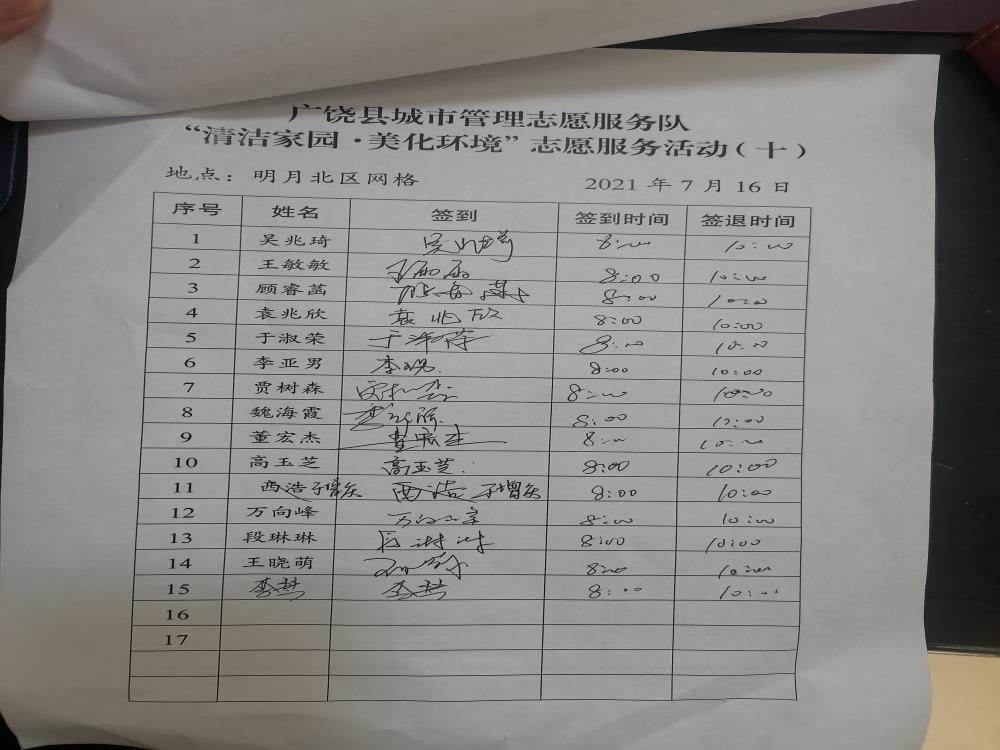 广饶县城市管理志愿服务队
“清洁家园·美化环境”志愿服务活动(十)
地点:明月北区网格 2021 年 7 月 16 日
序号 姓名 签到 签到时间 签退时间
1 吴兆琦 吴兆琦 8:00 10:00
2 王敏敏 8:00 10:00
3 顾睿菡 8:00 10:00
4 袁兆欣 袁兆欣 8:00 10:00
5 于淑荣 于淑荣 8:00 10:00
6 李亚男 8:00 10:00
7 贾树森 8:00 10:00
8 魏海霞 8:00 10:00
9 董宏杰 董宏杰 8:00 10:00
10 高玉芝 高玉芝. 8:00 10:00
11 西浩 于增庆 西浩 于增庆 8:00 10:00
12 万向峰 万向峰 8:00 10:00
13 段琳琳 段琳琳 8:00 10:00
14 王晓萌 8:00 10:00
15 8:00 10:00
16
17